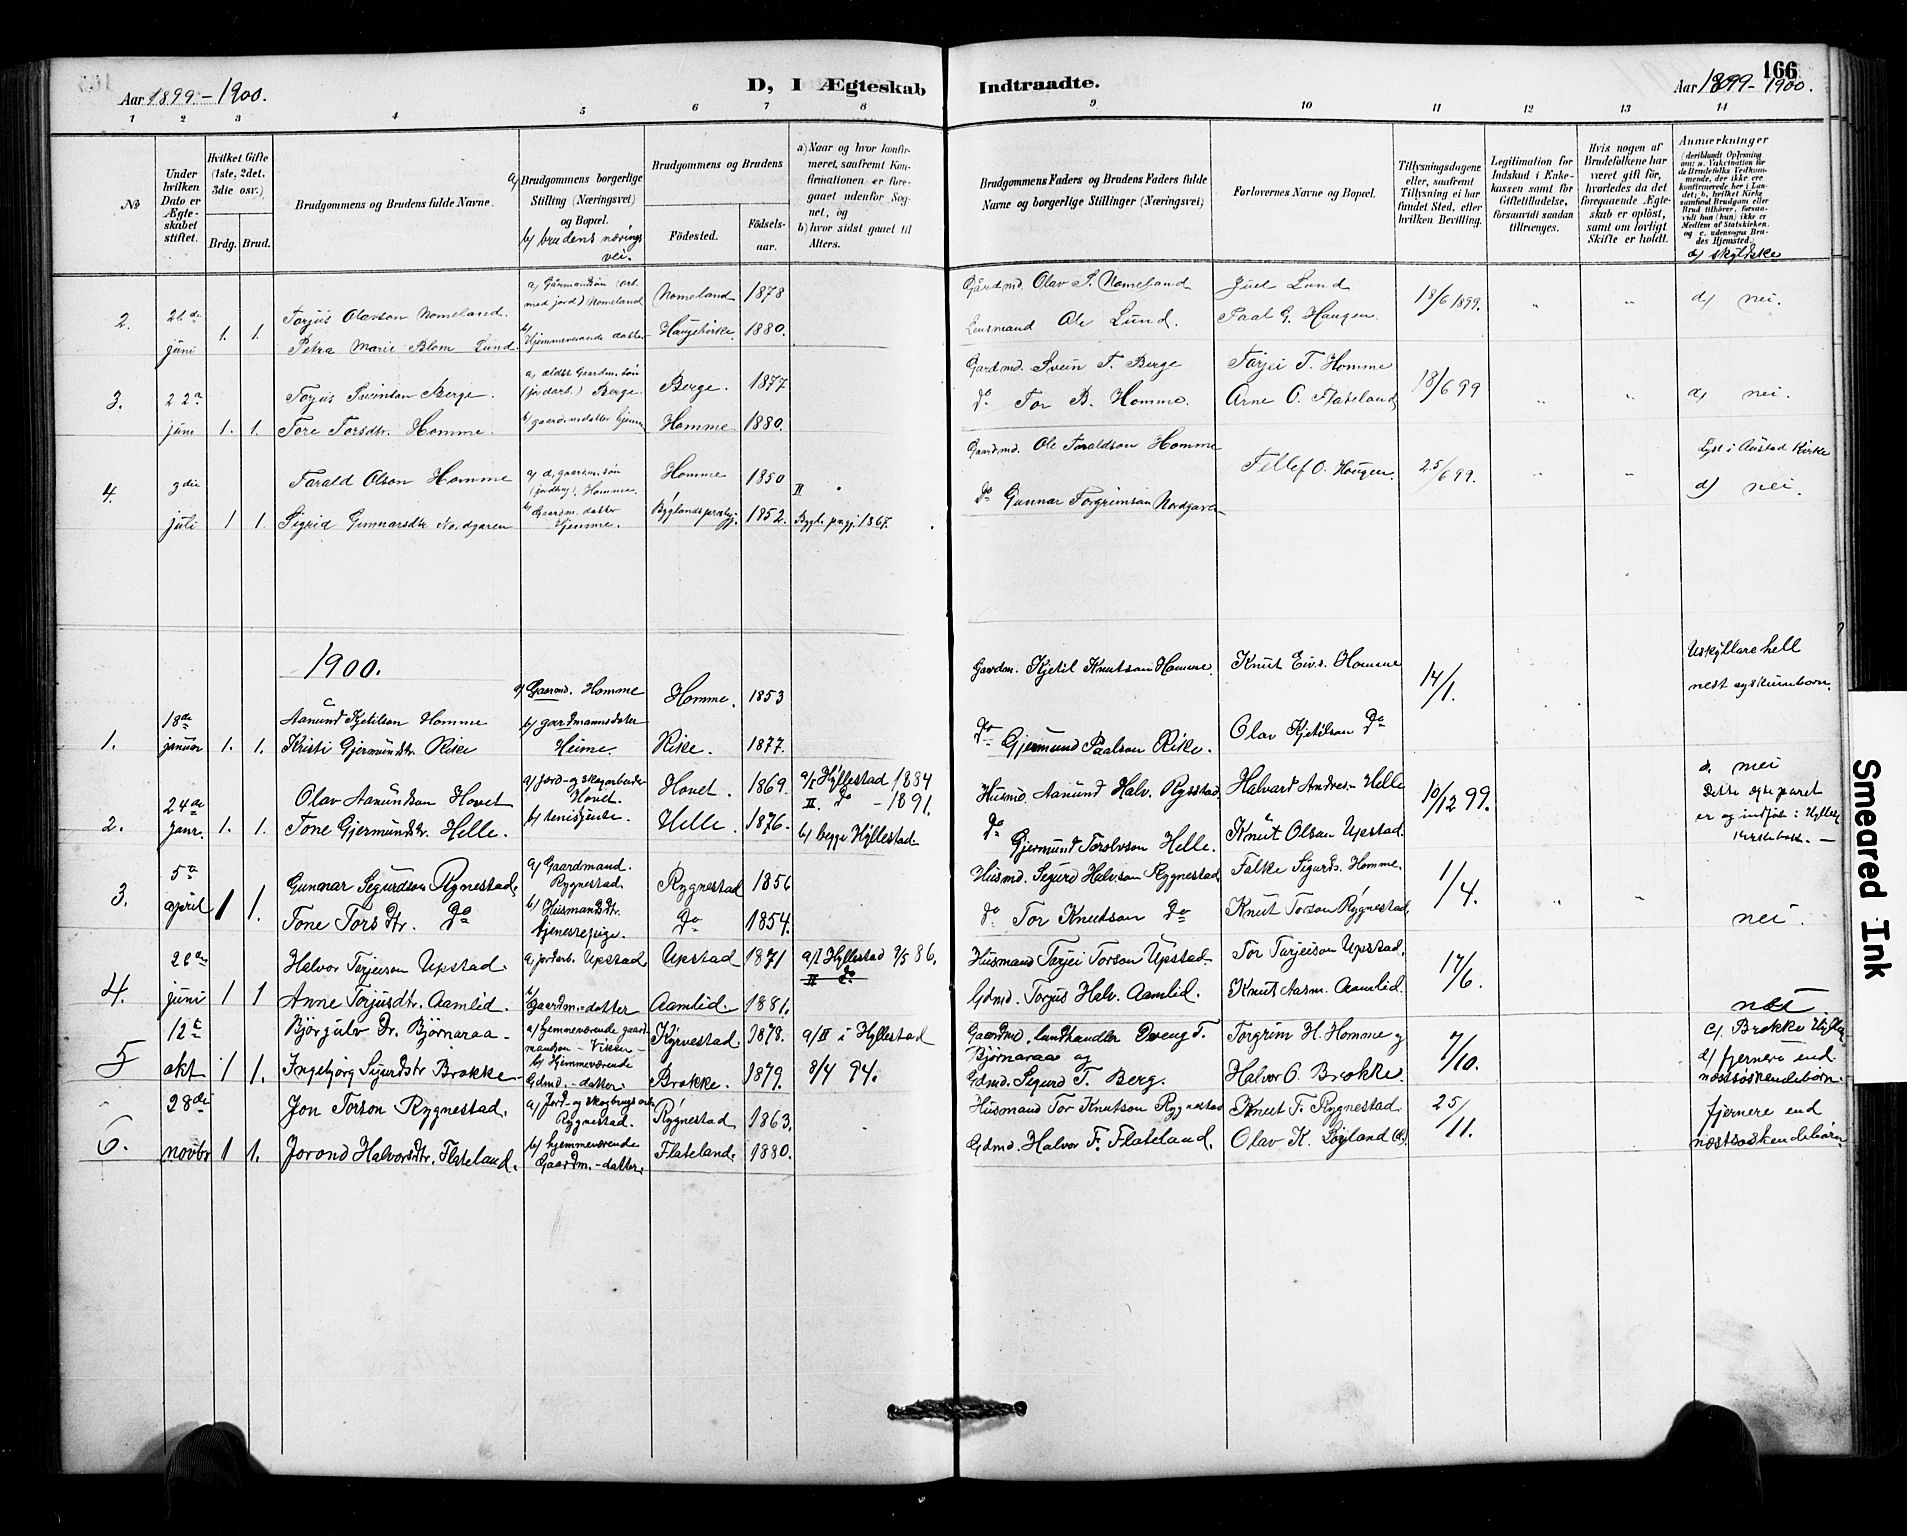 166
Aar 1899-1900.
D, I Ægteskab Indtraadte.
Aar 1899-1900.
1 2 3 4 5 6 7 8 9 10 11 12 13 14
No
Under hvilken Dato er Ægteskabet stiftet.
Hvilket Gifte (1ste, 2det, 3die osv.)
Brdg. Brud.
Brudgommens og Brudens fulde Navne.
a) Brudgommens borgerlige Stilling (Næringsvei) og Bopæl.
b) brudens nærings vei.
Brudgommens og Brudens
Fødested.
Fødsels-aar.
a) Naar og hvor konfirmeret, saafremt Konfirmationen er foregaaet udenfor Sognet, og
b) hvor sidst gaaet til Alters.
Brudgommens Faders og Brudens Faders fulde Navne og borgerlige Stillinger (Næringsvei)
Forlovernes Navne og Bopæl.
Tillysningsdagene eller, saafremt Tillysning ei har fundet Sted, efter hvilken Bevilling.
Legitimation for Indskud i Enkekassen samt for Giftetilladelse, forsaavidt saadan tiltrænges.
Hvis nogen af Brudefolkene har været gift før, hvorledes da det foregaaende Ægteskab er opløst, samt om lovligt Skifte er holdt.
Anmerkninger
(deriblandt Oplysning om: a. Vakcination for de Brudefolks Vedkommende, der ikke ere konfirmerede her i Landet; b. hvilket Kirkesamfund Brudgom eller Brud tilhører, forsaavidt han (hun) ikke er Medlem af Statskirken, og c. udensogns Brudes Hjemsted.
d) Skyldske
2. 21de juni 1. 1.
Torjus Olavson Nomeland.
Petra Marie Blom Lund.
a) Gårmandsøn (arb. med jord) Nomeland
b) Hjemmeværende datter
Nomeland 1878
Haugekirke 1880.
Gårdmd. Olav T. Nomeland
Lensmand Ole Lund.
Juel Lund
Paal G. Haugen.
18/6 1899.
d) nei.
3. 22a juni 1. 1.
Torjus Sveinson Berge.
Tore Torsdtr. Homme.
a) ældst Gaardm. søn (jordarb.) Berge.
b) gaardmdatter hjemme
Berge. 1877
Homme. 1880.
Gardmd. Svein T. Berge
do Tor B. Homme.
Tarjei T. Homme
Arne O. Flateland
18/6 99
d) nei.
4. 3die juli 1 1.
Tarald Olson Homme
Sigrid Gunnarsdtr Nordgaren
a) d. gaardm. søn (jordbrug), Homme.
b) Gaardm. datter Hjemme.
Homme 1850
Byglandsprestegj. 1852.
II Bygl. prgj. 1867.
Gaardmd. Ole Taraldson Homme
do Gunnar Torgrimson Nordgaren
Tellef O. Hougen.
25/6 99.
Lyst i Austad Kirke
d) nei.
1900.
1. 18de januar 1. 1.
Aanund Kjetilson Homme
Kristi Gjermundstr. Rike
a) Gaarmd. Homme
b) gardmannsdater Heime.
Homme. 1853
Rike. 1877.
Gardm. Kjetil Knutson Homme.
do Gjermund Paalson Rike.
Knut Eivs. Homme
Olav Kjetilson do
14/1.
Uskyllare hell nest syskiunborn.
2. 24de janr. 1. 1.
Olav Aanundson Hovet
Tone Gjermundstr. Helle.
a) Jord- og skogarbeider Hovet.
b) tenisjente.
Hovet. 1869.
Helle. 1876.
a/I Hyllestad 1884
II. do - 1891.
b) begge Hyllestad
Husmd. Aanund Halv. Rysstad
do Gjermund Torolvson Helle.
Halvard Andres- Helle
Knut Olson Upstad.
10/12 99.
d. nei
Dette egteparet er og indført i Hyllest. kirkebok.
3. 5te april 1 1.
Gunnar Segurdson Rygnestad.
Tone Tors dtr. do
a) Gaardmand. Rygnestad.
b) Husmandsdtr. tjenestepige.
Rygnestad 1856
do 1854.
Husmd. Segurd Halvson Rygnestad
do Tor Knutson do
Falke Sigurds. Homme.
Knut Torson Rygnestad.
1/4.
nei.
4. juni 1 1
Halvor Tarjeison Upstad.
Anne Torjusdtr. Aamlid.
a) jordarb. Upstad
b) Gaardm.-datter
Upstad 1871
Aamlid. 1881.
a/I Hyllestad 9/5 86.
II do
Husmand Tarjei Torson Upstad.
Gdmd. Torjus Halv. Aamlid.
Tor Tarjeison Upstad.
Knut Aasm. Aamlid.
17/6.
nei
5 12t okt 1 1.
Bjørgulv Dr. Bjørnaraa
Ingebjørg Sigurdstr Brokke
a) hjemmeværende gaardmandson - Viken
b) Hjemmeværende Gdmd.-datter
Kyrvestad. 1878.
Brokke. 1879.
a/II i Hyllestad
8/4 94.
Gaardmd. landhandler Dreng T. Bjørnaraa og
Gdmd. Segurd T. Berg.
Torgrim H. Homme og
Halvor O. Brokke.
7/10.
c) Brokke Hylle.
d) fjernere end næstsøskendebørn.
6. 28de novbr 1 1.
Jon Torson Rygnestad.
Jorond Halvorsdtr. Flateland.
a) Jord- og skogbrugsarb. Rygnestad.
b) hjemmeværende Gaardm.-datter.
Rygnestad 1863.
Flateland. 1880.
Husmand Tor Knutson Rygnestad
Gdmd. Halvor F. Flateland.
Knut T. Rygnestad.
Olav K. Løyland
25/11.
fjernere end næstsøskendebørn
Smeared Ink